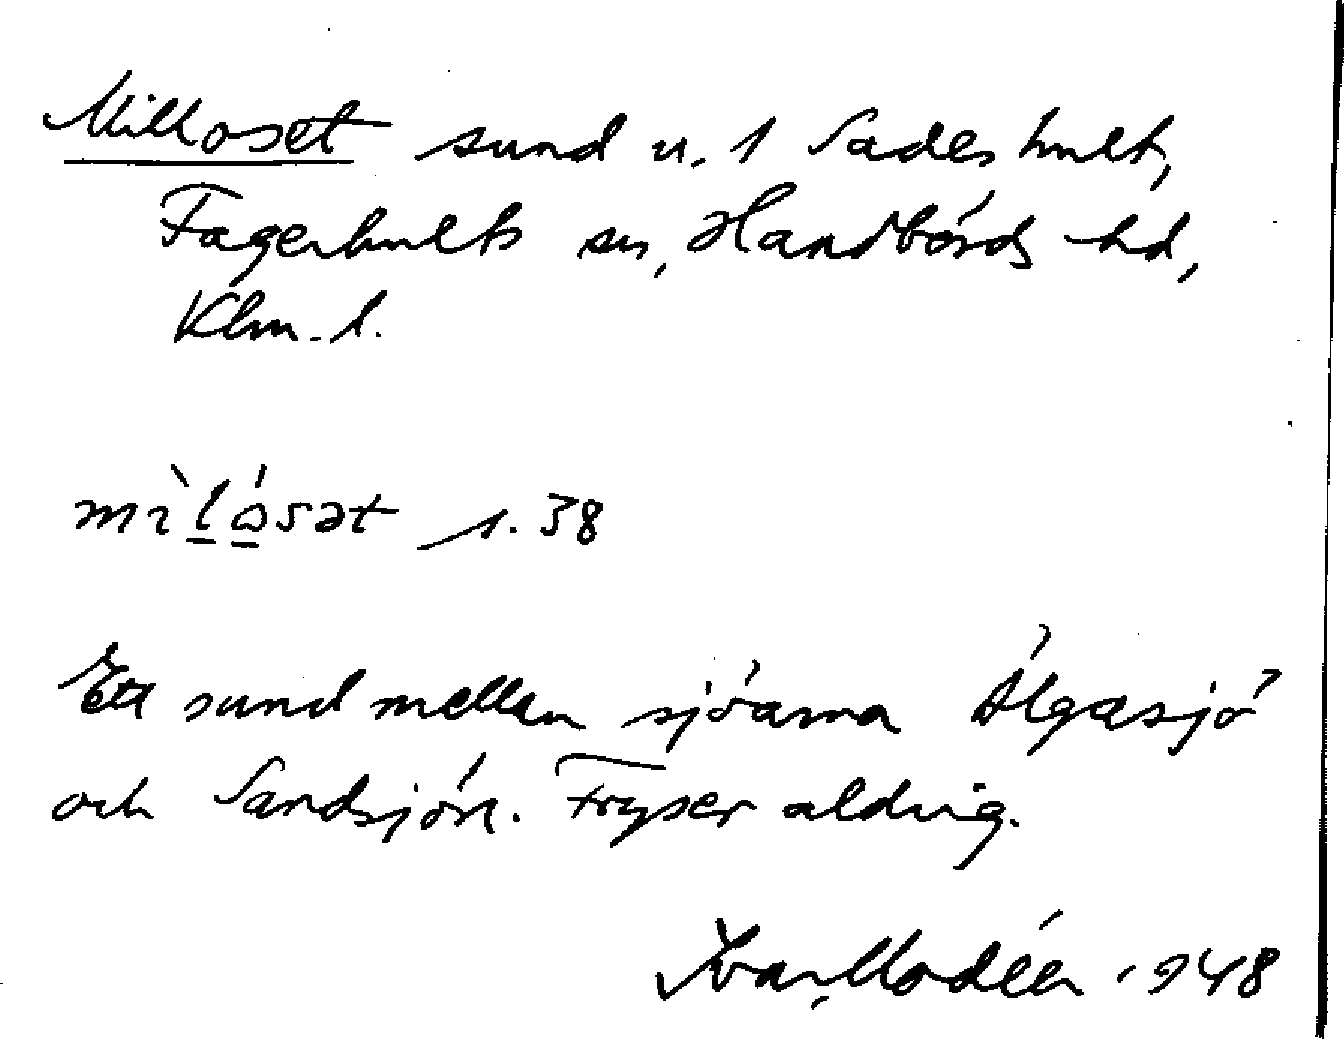 Milloset sund u. 1 Sadeshult,
Fagerhults sn, Handbörds hd,
Klm. l.
mìlósət s. 38
Ett sund mellan sjöarna Älgasjö
och Sandsjön. Fryser aldrig.
Ivar Modéer 1948